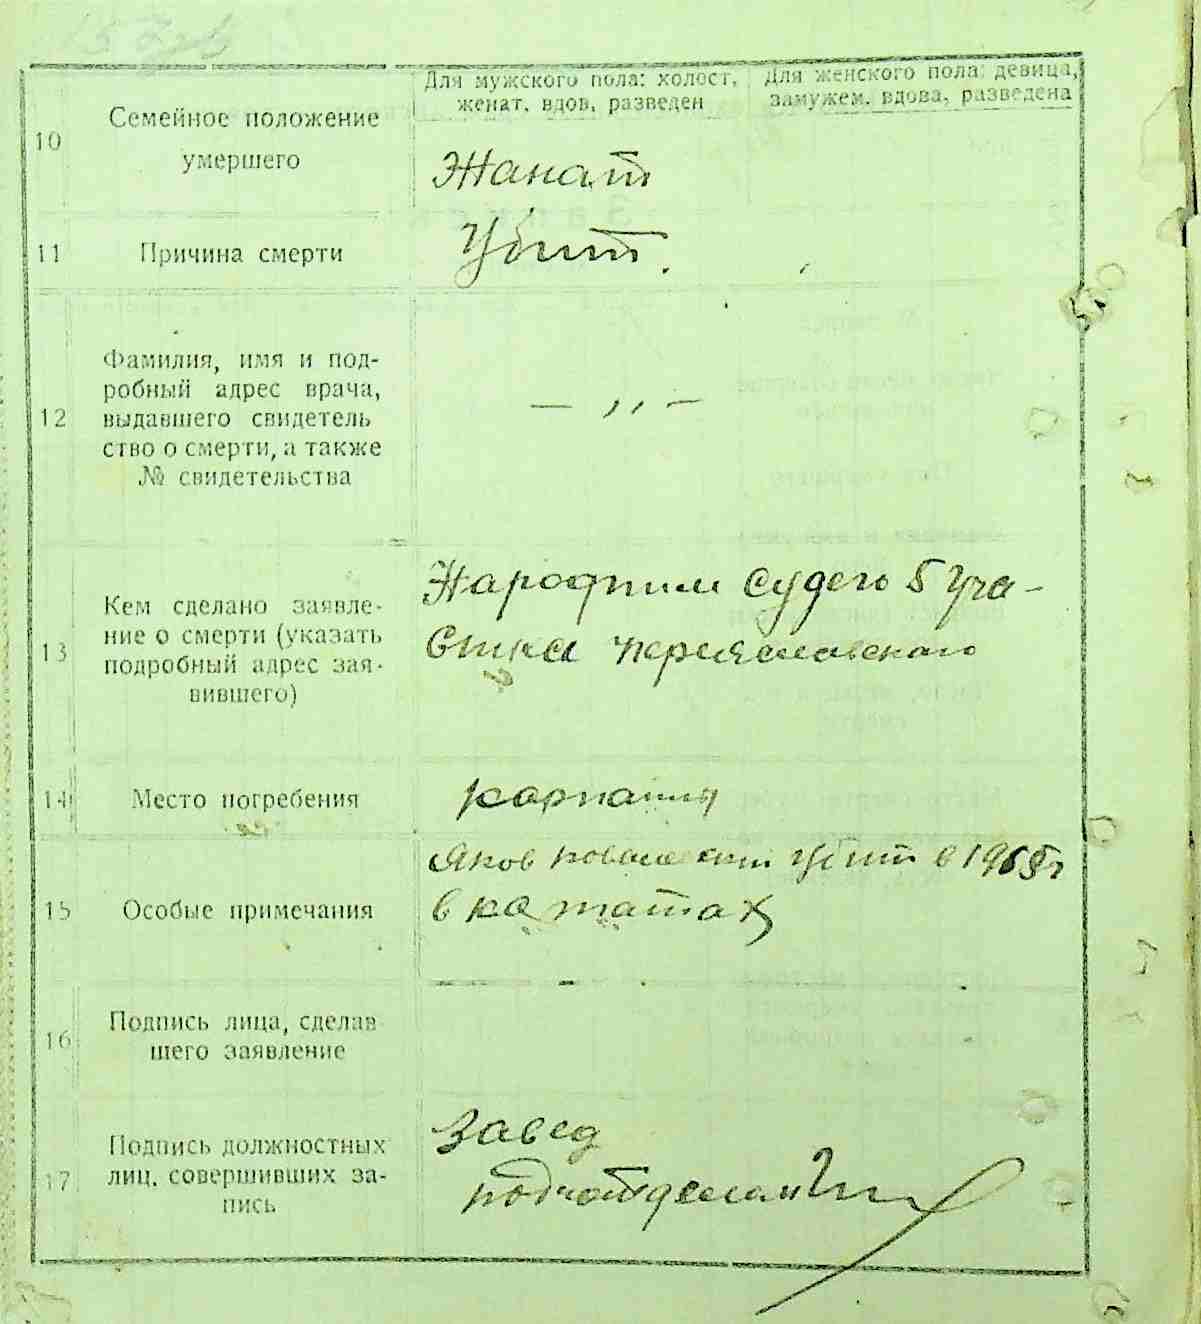 Для мужского пола: холост,
женат, вдов, разведен
Для женского пола: девица,
замужем, вдова, разведена
10
Семейное положение
умершего
Жанат
11
Причина смерти
Убит.
12
Фамилия, имя и под-
робный адрес врача,
выдавшего свидетель
ство о смерти, а также
№ свидетельства
— ,, —
13
Кем сделано заявле-
ние о смерти (указать
подробный адрес зая-
вившего)
Народным судею 5 Уча-
стка Переяславского
14
Место погребения
карпатия
15
Особые примечания
Яков убит в
в
16
Подпись лица, сделав
шего заявление
17
Подпись должностных
лиц, совершивших за-
пись
Завед
подъотделом